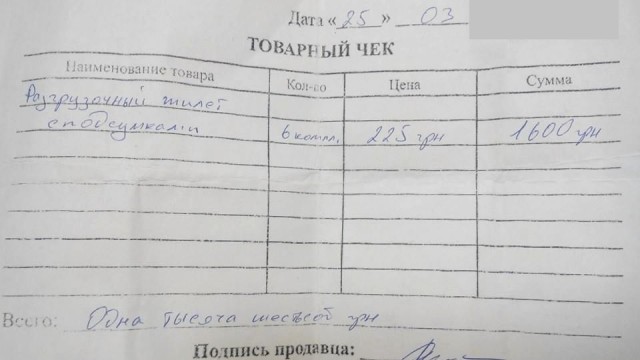 Дата «25» 03
ТОВАРНЫЙ ЧЕК
Наименование товара Кол-во Цена Сумма
Разгрузочный жилет
с подсумками 6 компл. 225 грн 1600 грн
Всего: Одна тысяча шестсот грн
Подпись продавца: